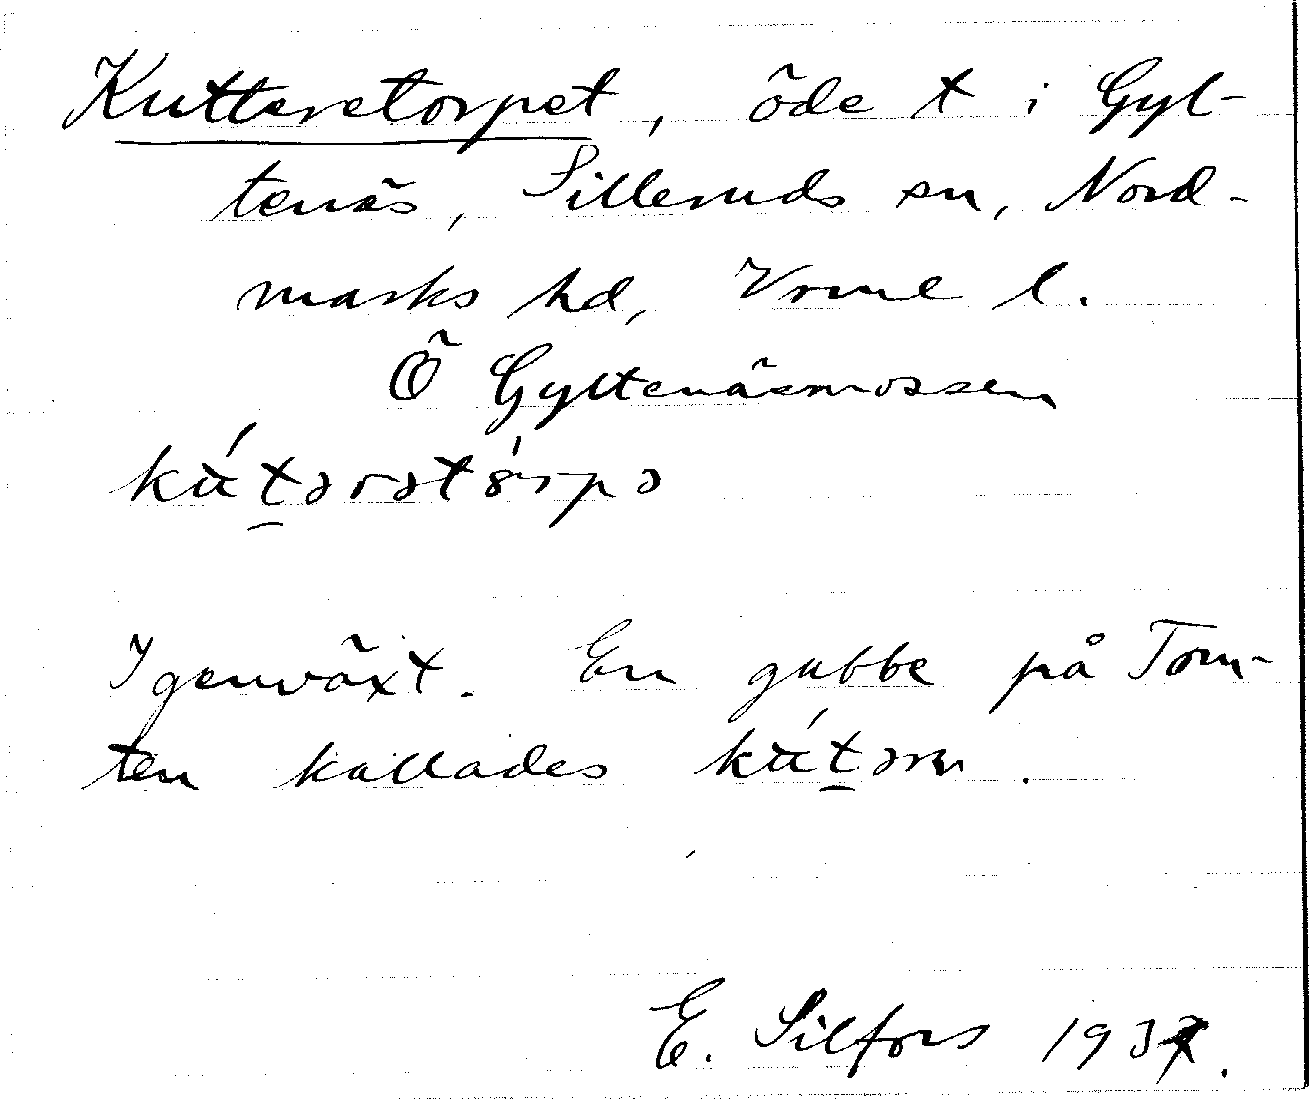 Kutteretorpet, öde t i Gyl-
tenäs, Silleruds sn, Nord-
marks hd, Vrml l.
Ö Gyltenäsmossen
kút̯ərətórpə
Igenväxt. En gubbe på Tom-
ten kallades kút̯ərn.
E. Silfors 1937.